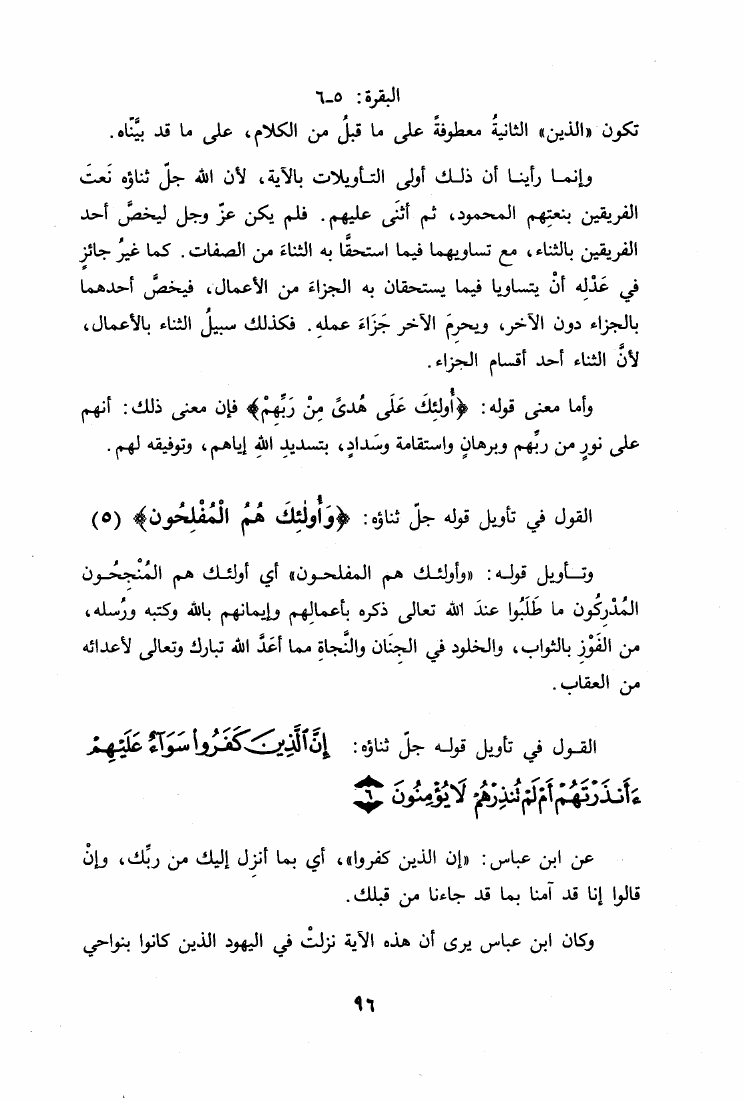 البقرة: ٥-٦
تكون «الذين» الثانيةُ معطوفةً على ما قبلُ من الكلام، على ما قد بيَّنّاه.
وإنما رأينا أن ذلك أولى التأويلات بالآية، لأن الله جلّ ثناؤه نَعتَ
الفريقين بنعتِهم المحمود، ثم أثنَى عليهم. فلم يكن عزّ وجل ليخصَّ أحد
الفريقين بالثناء، مع تساويهما فيما استحقَّا به الثناءَ من الصفات. كما غيرُ جائزٍ
في عَدْلِه أنْ يتساويا فيما يستحقان به الجزاءَ من الأعمال، فيخصَّ أحدهما
بالجزاء دون الآخر، ويحرِمَ الآخر جَزَاءَ عملهِ. فكذلك سبيلُ الثناء بالأعمال،
لأنَّ الثناء أحد أقسام الجزاء.
وأما معنى قوله: ﴿أُولئِكَ عَلَى هُدىً مِنْ رَبِّهِمْ﴾ فإن معنى ذلك: أنهم
على نورٍ من ربِّهم وبرهانٍ واستقامة وسَدادٍ، بتسديدِ اللهِ إياهم، وتوفيقه لهم.
القول في تأويل قوله جلّ ثناؤه: ﴿وَأُولٰئِكَ هُمُ الْمُفْلِحُون﴾ (٥)
وتأويل قوله: «وأولئك هم المفلحون» أي أولئك هم المُنْجِحُون
المُدْرِكُون ما طَلَبُوا عندَ الله تعالى ذكره بأعمالِهم وإيمانهم بالله وكتبه ورُسله،
من الفَوْزِ بالثواب، والخلود في الجِنَان والنَّجاةِ مما أعَدَّ الله تبارك وتعالى لأعدائه
من العقاب.
القول في تأويل قوله جلّ ثناؤه: إِنَّ ٱلَّذِينَ كَفَرُوا۟ سَوَآءٌ عَلَيْهِمْ
ءَأَنذَرْتَهُمْ أَمْ لَمْ تُنذِرْهُمْ لَا يُؤْمِنُونَ ٦
عن ابن عباس: «إن الذين كفروا»، أي بما أنزِل إليك من ربِّك، وإنْ
قالوا إنا قد آمنا بما قد جاءنا من قبلك.
وكان ابن عباس يرى أن هذه الآية نزلتْ في اليهود الذين كانوا بنواحي
٩٦